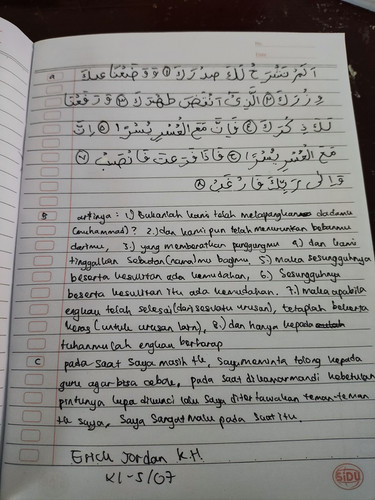 A أَلَمْ نَشْرَحْ لَكَ صَدْرَكَ ① وَوَضَعْنَا عَنكَ
وِزْرَكَ ② الَّذِيْ أَنْقَضَ ظَهْرَكَ ③ وَرَفَعْنَا
لَكَ ذِكْرَكَ ④ فَإِنَّ مَعَ الْعُسْرِ يُسْرًا ⑤ إِنَّ
مَعَ الْعُسْرِ يُسْرًا ⑥ فَإِذَا فَرَغْتَ فَانْصَبْ ⑦
وَإِلَى رَبِّكَ فَارْغَبْ ⑧
B artinya : 1) Bukankah kami telah melapangkan dadamu
(muhammad)? 2.) dan kami pun telah menurunkan bebanmu
darimu, 3.) yang memberatkan punggungmu 4) dan kami
tinggalkan sebutan (nama)mu bagmu. 5.) maka sesungguhnya
beserta kesulitan ada kemudahan. 6.) Sesungguhnya
beserta kesulitan itu ada kemudahan. 7.) maka apabila
engkau telah selesai (dari sesuatu urusan), tetaplah bekerja
keras (untuk urusan lain), 8.) dan hanya kepada
tuhanmulah engkau berharap
C pada saat saya masih tk, saya meminta tolong kepada
guru agar bisa cebok, pada saat dikamar mandi kebetulan
pintunya lupa dikunci lalu saya ditertawakan teman-teman
tk saya, saya sangat malu pada saat itu.
Erich Jordan K.H.
XI-5/07
SiDU